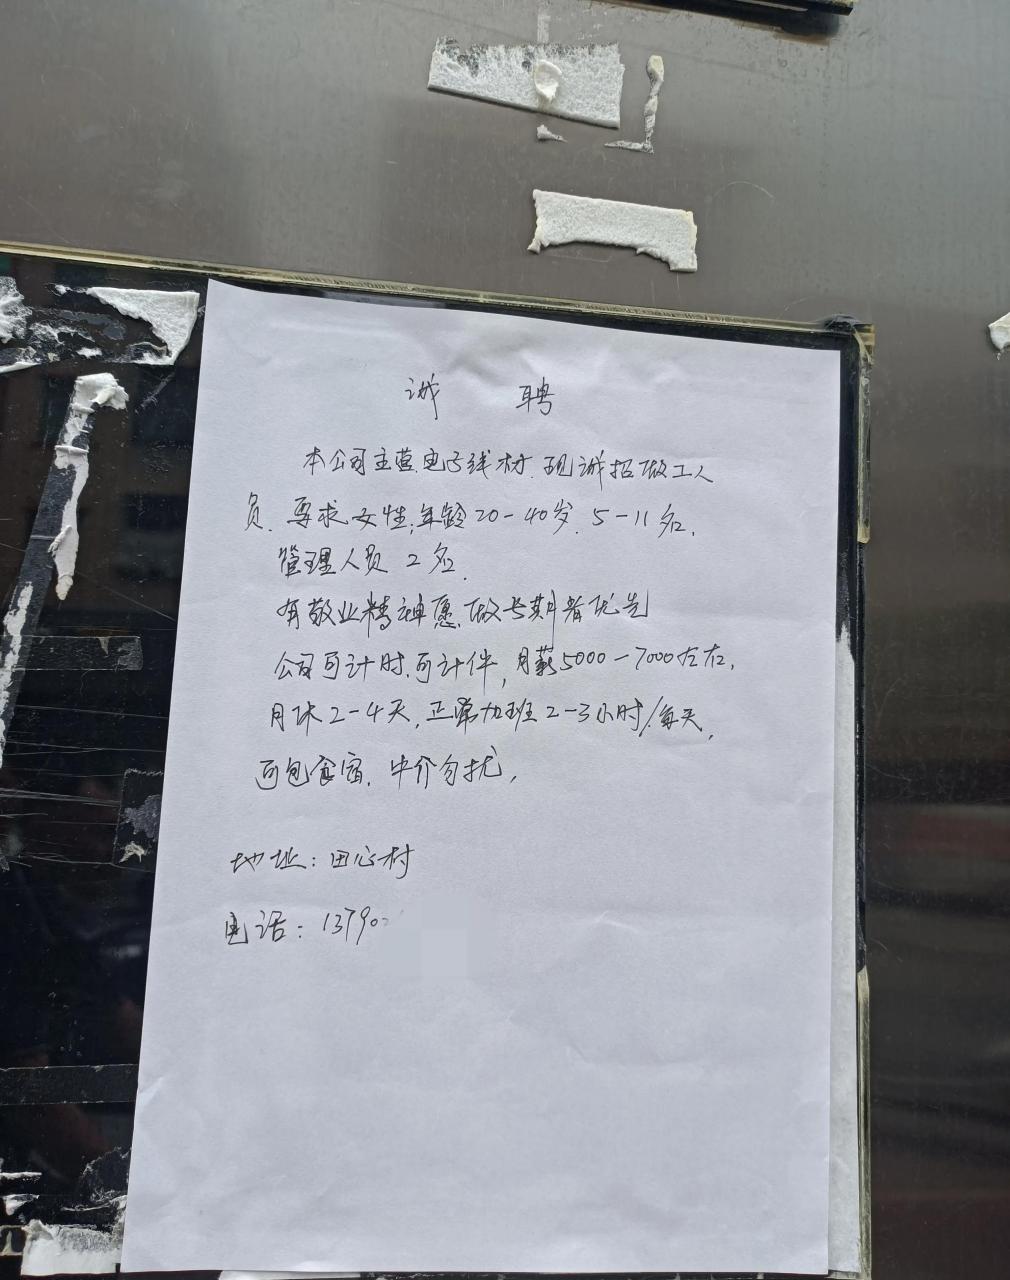 诚 聘
本公司主营电子线材.现诚招做工人
员.要求女性,年龄20-40岁.5-11名.
管理人员2名.
有敬业精神愿做长期者优先
公司可计时.可计件,月薪5000-7000左右,
月休2-4天,正常加班2-3小时/每天,
可包食宿.中介勿扰,
地址:田心村
电话:13790